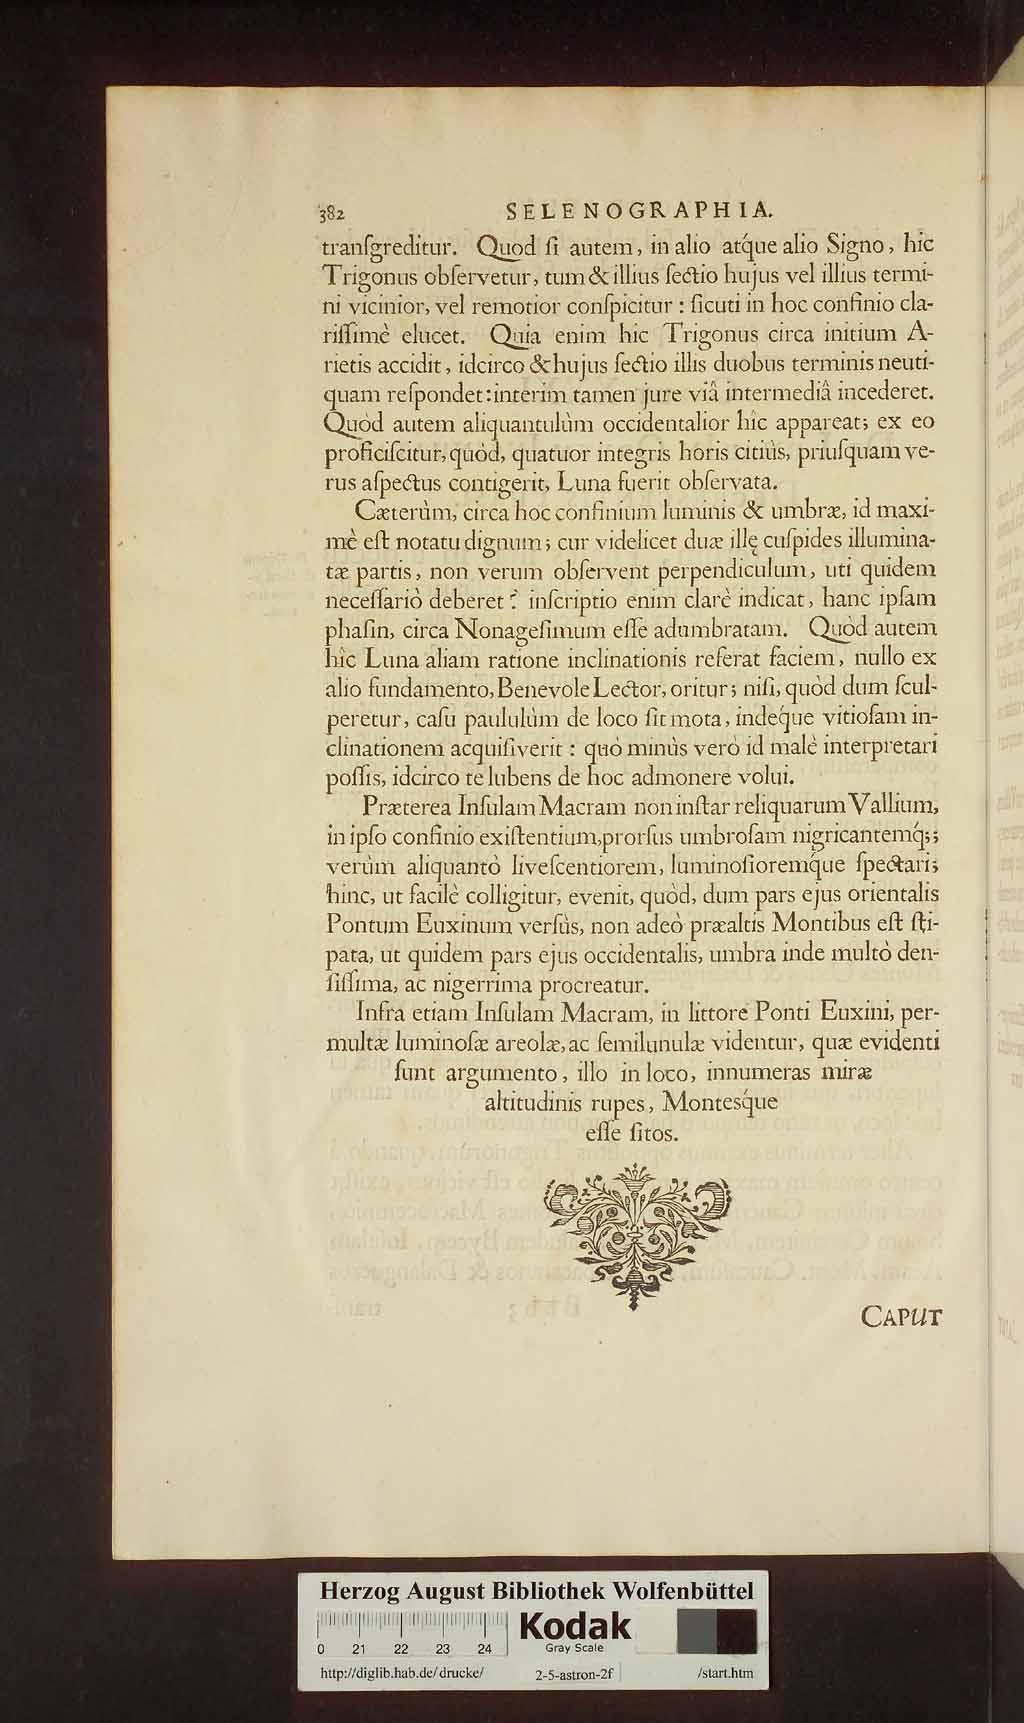 382 SELENOGRAPHIA.
tranſgreditur. Quod ſi autem, in alio atq́ue alio Signo, hic
Trigonus obſervetur, tum & illius ſectio hujus vel illius termi-
ni vicinior, vel remotior conſpicitur : ſicuti in hoc confinio cla-
riſſimè elucet. Quia enim hic Trigonus circa initium A-
rietis accidit, idcirco & hujus ſectio illis duobus terminis neuti-
quam reſpondet: interim tamen jure viâ intermediâ incederet.
Quòd autem aliquantulùm occidentalior hîc appareat; ex eo
proficiſcitur, quòd, quatuor integris horis citiùs, priuſquam ve-
rus aſpectus contigerit, Luna fuerit obſervata.
Cæterùm, circa hoc confinium luminis & umbræ, id maxi-
mè eſt notatu dignum; cur videlicet duæ illę cuſpides illumina-
tæ partis, non verum obſervent perpendiculum, uti quidem
neceſſariò deberet? inſcriptio enim clarè indicat, hanc ipſam
phaſin, circa Nonageſimum eſſe adumbratam. Quòd autem
hîc Luna aliam ratione inclinationis referat faciem, nullo ex
alio fundamento, Benevole Lector, oritur; niſi, quòd dum ſcul-
peretur, caſu paululùm de loco ſit mota, indeq́ue vitioſam in-
clinationem acquiſiverit : quò minùs verò id malè interpretari
poſſis, idcirco te lubens de hoc admonere volui.
Præterea Inſulam Macram non inſtar reliquarum Vallium,
in ipſo confinio exiſtentium, prorſus umbroſam nigricantemq́;;
verùm aliquantò liveſcentiorem, luminoſioremq́ue ſpectari;
hinc, ut facilè colligitur, evenit, quòd, dum pars ejus orientalis
Pontum Euxinum verſùs, non adeò præaltis Montibus eſt ſti-
pata, ut quidem pars ejus occidentalis, umbra inde multò den-
ſiſſima, ac nigerrima procreatur.
Infra etiam Inſulam Macram, in littore Ponti Euxini, per-
multæ luminoſæ areolæ, ac ſemilunulæ videntur, quæ evidenti
ſunt argumento, illo in loco, innumeras miræ
altitudinis rupes, Montesq́ue
eſſe ſitos.
CAPUT
Herzog August Bibliothek Wolfenbüttel
Kodak
Gray Scale
0 21 22 23 24
http://diglib.hab.de/drucke/ 2-5-astron-2f /start.htm